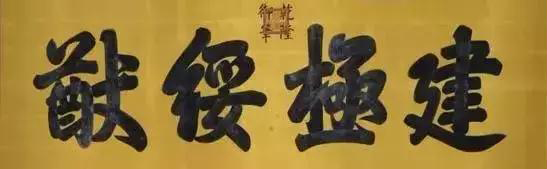 乾隆御筆
建極綏猷